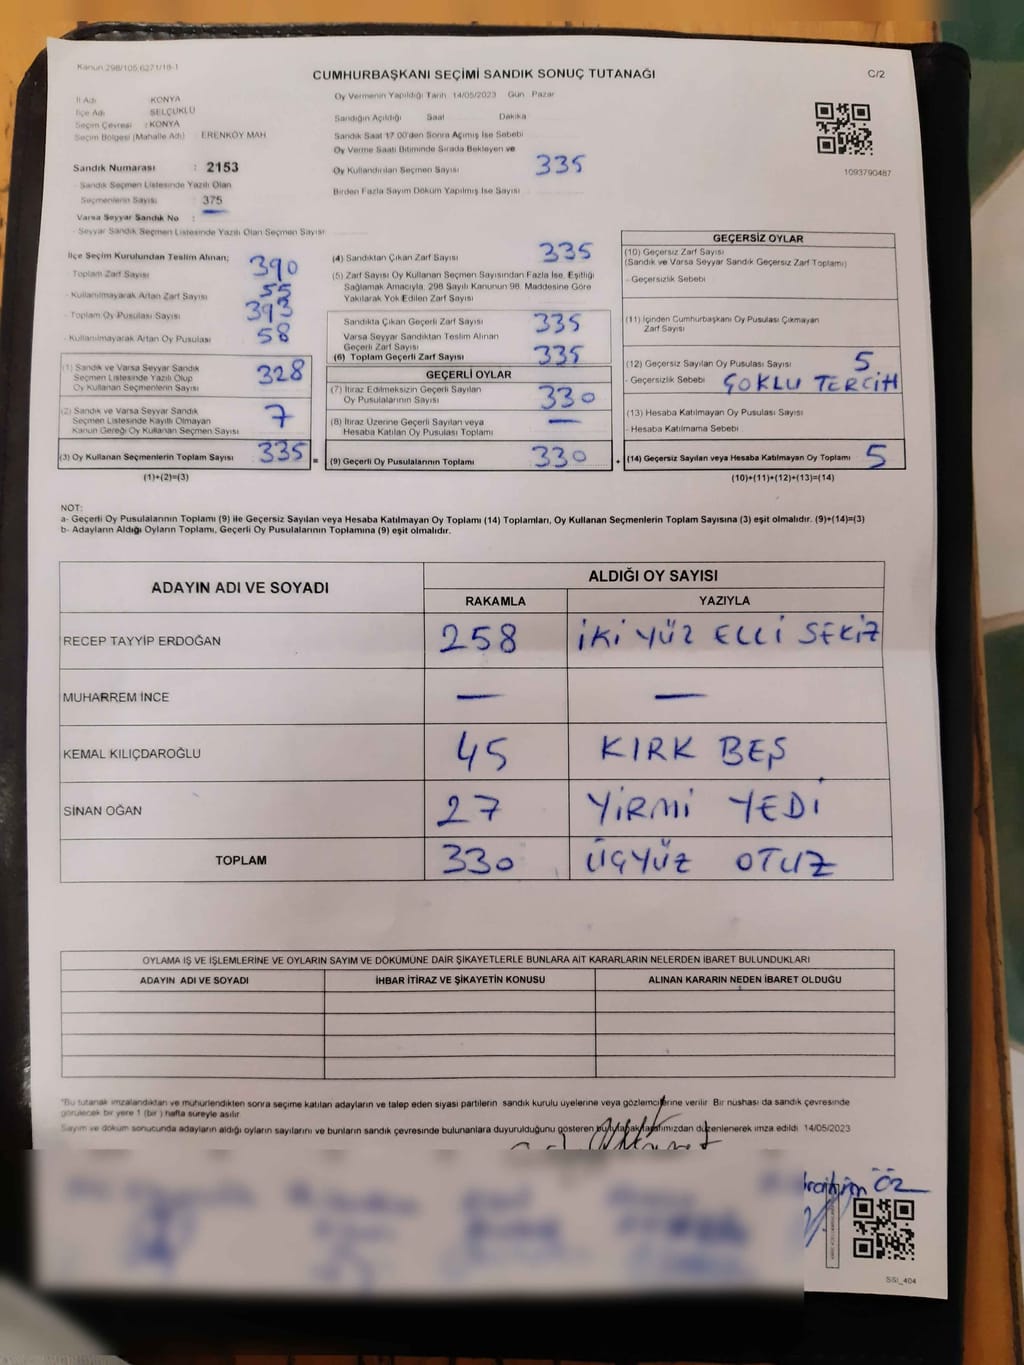 Kanun 298/105,6271/18-1
CUMHURBAŞKANI SEÇİMİ SANDIK SONUÇ TUTANAĞI
C/2
İl Adı : KONYA
İlçe Adı : SELÇUKLU
Seçim Çevresi : KONYA
Seçim Bölgesi (Mahalle Adı) ERENKÖY MAH
Sandık Numarası : 2153
- Sandık Seçmen Listesinde Yazılı Olan
Seçmenlerin Sayısı 375
Varsa Seyyar Sandık No :
- Seyyar Sandık Seçmen Listesinde Yazılı Olan Seçmen Sayısı
Oy Vermenin Yapıldığı Tarih 14/05/2023 Gün Pazar
Sandığın Açıldığı Saat Dakika
Sandık Saat 17.00'den Sonra Açılmış İse Sebebi
Oy Verme Saati Bitiminde Sırada Bekleyen ve
Oy Kullandırılan Seçmen Sayısı 335
Birden Fazla Sayım Döküm Yapılmış İse Sayısı
1093790487
İlçe Seçim Kurulundan Teslim Alınan;
Toplam Zarf Sayısı 390
- Kullanılmayarak Artan Zarf Sayısı 55
- Toplam Oy Pusulası Sayısı 393
- Kullanılmayarak Artan Oy Pusulası 58
(1) Sandık ve Varsa Seyyar Sandık
Seçmen Listesinde Yazılı Olup
Oy Kullanan Seçmenlerin Sayısı 328
(2) Sandık ve Varsa Seyyar Sandık
Seçmen Listesinde Kayıtlı Olmayan
Kanun Gereği Oy Kullanan Seçmen Sayısı 7
(3) Oy Kullanan Seçmenlerin Toplam Sayısı 335 =
(1)+(2)=(3)
(4) Sandıktan Çıkan Zarf Sayısı 335
(5) Zarf Sayısı Oy Kullanan Seçmen Sayısından Fazla İse, Eşitliği
Sağlamak Amacıyla, 298 Sayılı Kanunun 98. Maddesine Göre
Yakılarak Yok Edilen Zarf Sayısı
Sandıkta Çıkan Geçerli Zarf Sayısı 335
Varsa Seyyar Sandıktan Teslim Alınan
Geçerli Zarf Sayısı
(6) Toplam Geçerli Zarf Sayısı 335
GEÇERLİ OYLAR
(7) İtiraz Edilmeksizin Geçerli Sayılan
Oy Pusulalarının Sayısı 330
(8) İtiraz Üzerine Geçerli Sayılan veya
Hesaba Katılan Oy Pusulası Toplamı —
(9) Geçerli Oy Pusulalarının Toplamı 330 +
GEÇERSİZ OYLAR
(10) Geçersiz Zarf Sayısı
(Sandık ve Varsa Seyyar Sandık Geçersiz Zarf Toplamı)
- Geçersizlik Sebebi
(11) İçinden Cumhurbaşkanı Oy Pusulası Çıkmayan
Zarf Sayısı
(12) Geçersiz Sayılan Oy Pusulası Sayısı 5
- Geçersizlik Sebebi ÇOKLU TERCİH
(13) Hesaba Katılmayan Oy Pusulası Sayısı
- Hesaba Katılmama Sebebi
(14) Geçersiz Sayılan veya Hesaba Katılmayan Oy Toplamı 5
(10)+(11)+(12)+(13)=(14)
NOT:
a- Geçerli Oy Pusulalarının Toplamı (9) ile Geçersiz Sayılan veya Hesaba Katılmayan Oy Toplamı (14) Toplamları, Oy Kullanan Seçmenlerin Toplam Sayısına (3) eşit olmalıdır. (9)+(14)=(3)
b- Adayların Aldığı Oyların Toplamı, Geçerli Oy Pusulalarının Toplamına (9) eşit olmalıdır.
ADAYIN ADI VE SOYADI ALDIĞI OY SAYISI
RAKAMLA YAZIYLA
RECEP TAYYİP ERDOĞAN 258 İKİ YÜZ ELLİ SEKİZ
MUHARREM İNCE — —
KEMAL KILIÇDAROĞLU 45 KIRK BEŞ
SİNAN OĞAN 27 YİRMİ YEDİ
TOPLAM 330 ÜÇYÜZ OTUZ
OYLAMA İŞ VE İŞLEMLERİNE VE OYLARIN SAYIM VE DÖKÜMÜNE DAİR ŞİKAYETLERLE BUNLARA AİT KARARLARIN NELERDEN İBARET BULUNDUKLARI
ADAYIN ADI VE SOYADI İHBAR İTİRAZ VE ŞİKAYETİN KONUSU ALINAN KARARIN NEDEN İBARET OLDUĞU
*Bu tutanak imzalandıktan ve mühürlendikten sonra seçime katılan adayların ve talep eden siyasi partilerin sandık kurulu üyelerine veya gözlemcilerine verilir. Bir nüshası da sandık çevresinde
görülecek bir yere 1 (bir ) hafta süreyle asılır.
Sayım ve döküm sonucunda adayların aldığı oyların sayılarını ve bunların sandık çevresinde bulunanlara duyurulduğunu gösteren bu tutanak tarafımızdan düzenlenerek imza edildi 14/05/2023
ÖZ
SSI_404